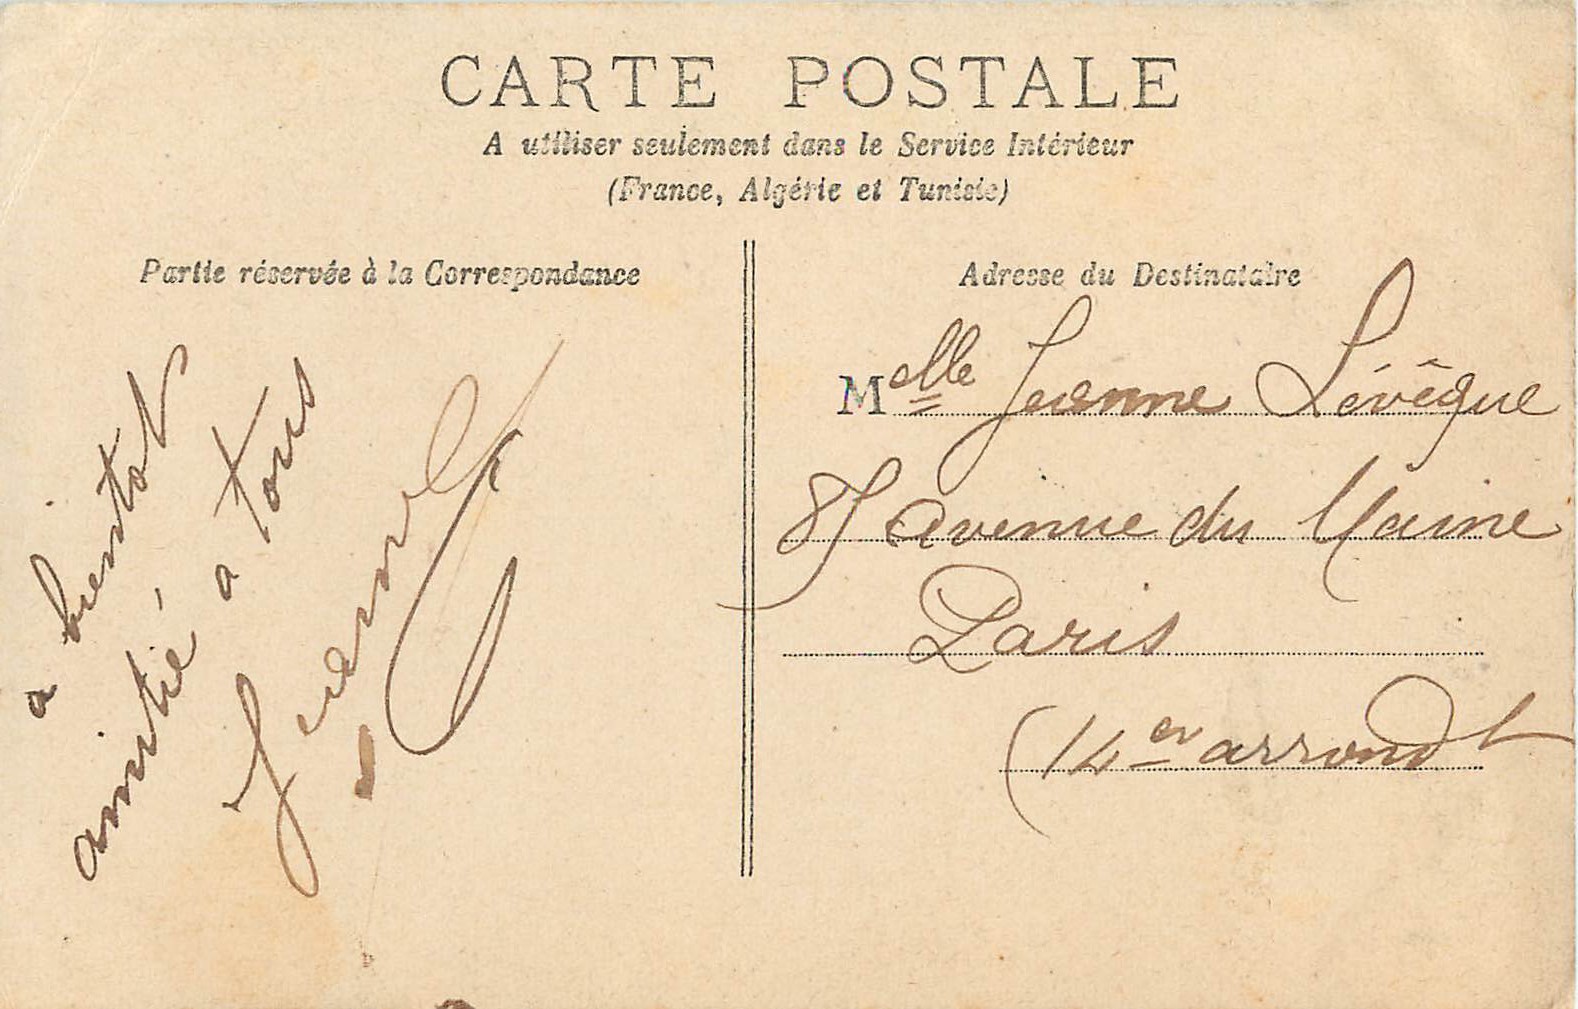 CARTE POSTALE
A utiliser seulement dans le Service Intérieur
(France, Algérie et Tunisie)
Partie réservée à la Correspondance
a bientot
amitié a tous
Adresse du Destinataire
Melle Jeanne Lévêque
85 avenue du Maine
Paris
(14er arrondt